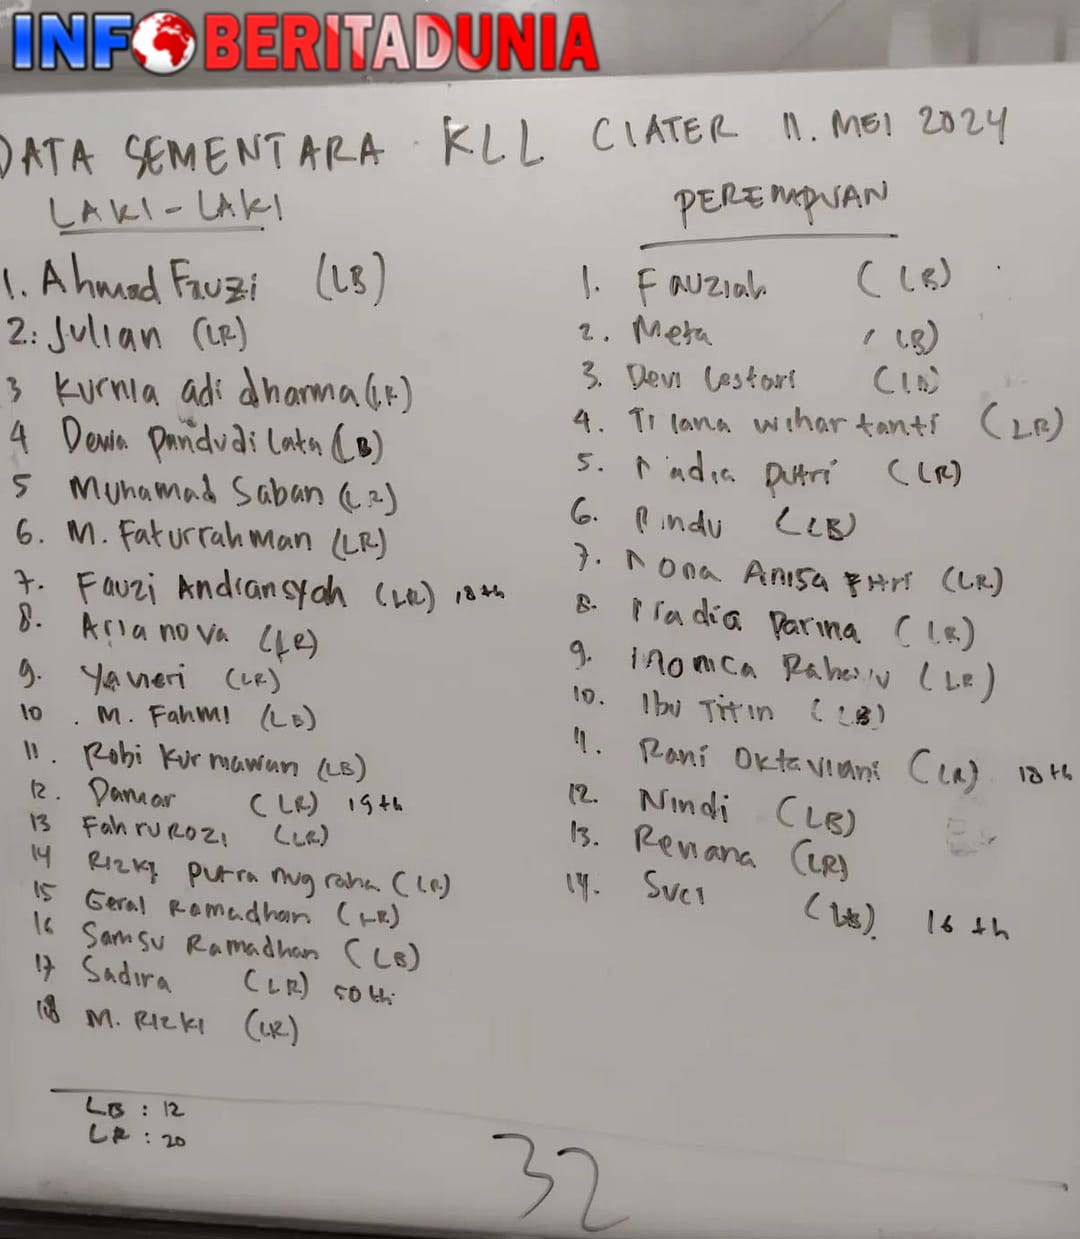 INFOBERITADUNIA
DATA SEMENTARA KLL CIATER 11. MEI 2024
LAKI-LAKI
1. Ahmad Fauzi (LB)
2. Julian (LR)
3 Kurnia adi dharma (LR)
4 Dewa Pandudi Lata (LB)
5 Muhamad Saban (LR)
6. M. Faturrahman (LR)
7. Fauzi Andiansyah (LR) 18 th
8. Aria nova (LR)
9. Yaneri (LR)
10. M. Fahmi (LB)
11. Robi Kurnawan (LB)
12. Damar (LR) 19 th
13 Fahrurozi (LR)
14 Rizky putra nugraha (LR)
15 Geral Ramadhan (LR)
16 Samsu Ramadhan (LB)
17 Sadira (LR) 50 th
18 M. RIZKI (LR)
PEREMPUAN
1. Fauziah (LB)
2. Meta (LB)
3. Devi Lestari
4. Tilana wihartanti (LR)
5. Nadia putri (LR)
6. Rindu (LB)
7. Nona Anisa Fitri (LR)
8. Darina (LR)
9. (LR)
10. Ibu Titin (LB)
11. Rani Oktaviani (LR) 18 th
12. Nindi (LB)
13. Revana (LR)
14. Suci (LB) 16 th
LB : 12
LR : 20
32